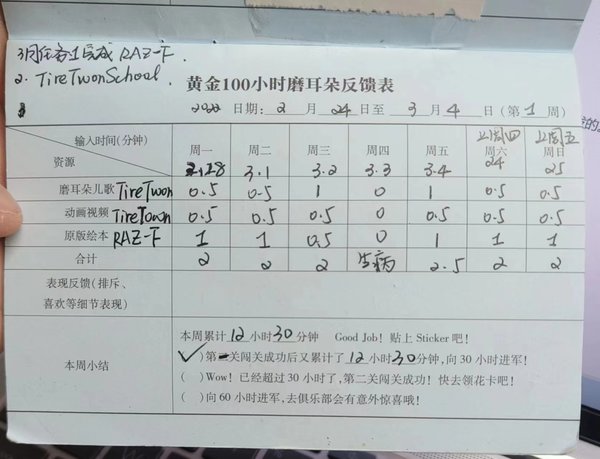 3月任务1完成 RAZ-F.
2. TireTwonSchool.
黄金100小时磨耳朵反馈表
2022 日期: 2 月 24 日至 3 月 4 日(第 1 周)
输入时间(分钟) 资源 周一 2.28 周二 3.1 周三 3.2 周四 3.3 周五 3.4 上周四 周六 24 上周五 周日 25
磨耳朵儿歌 TireTwon 0.5 0.5 1 0 1 0.5 0.5
动画视频 TireTown 0.5 0.5 0.5 0 0.5 0.5 0.5
原版绘本 RAZ-F 1 1 0.5 0 1 1 1
合计 2 2 2 生病 2.5 2 2
表现反馈(排斥、
喜欢等细节表现)
本周小结
本周累计 12 小时 30 分钟 Good Job! 贴上 Sticker 吧!
(✓)第一关闯关成功后又累计了 12 小时 30 分钟,向 30 小时进军!
( )Wow! 已经超过 30 小时了,第二关闯关成功! 快去领花卡吧!
( )向 60 小时进军,去俱乐部会有意外惊喜哦!